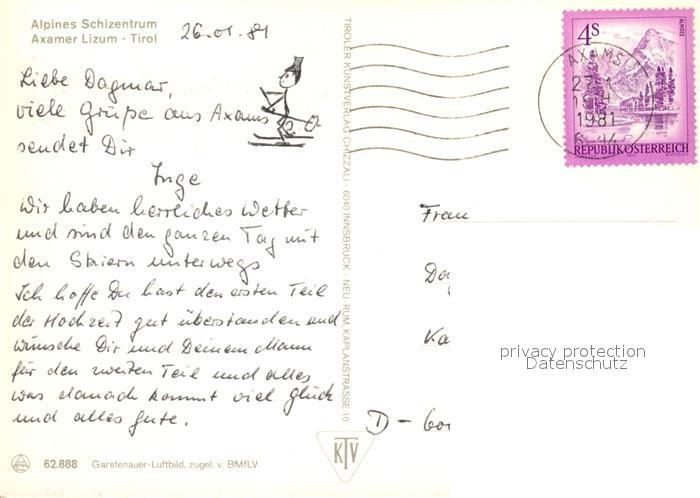 Alpines Schizentrum
Axamer Lizum - Tirol
26.01.81
Liebe Dagmar,
viele Grüße aus Axams
sendet Dir
Inge
Wir haben herrliches Wetter
und sind den ganzen Tag mit
den Skiern unterwegs
Ich hoffe Du hast den ersten Teil
der Hochzeit gut überstanden und
wünsche Dir und Deinem Mann
für den zweiten Teil und alles
was danach kommt viel Glück
und alles Gute.
62.888 Garstenauer-Luftbild, zugel. v. BMfLV
TIROLER KUNSTVERLAG CHIZZALI · 6040 INNSBRUCK · NEU-RUM, KAPLANSTRASSE 10
KTV
4S
ALMSEE
REPUBLIK ÖSTERREICH
AXAMS
1981
Frau
Da
Ka
D-
privacy protection
Datenschutz